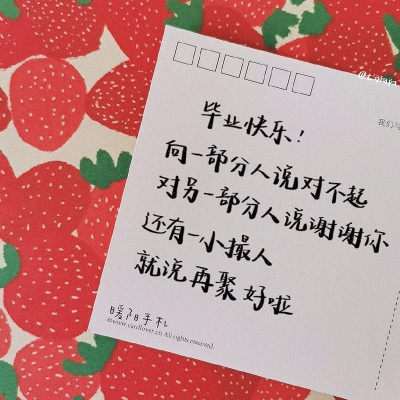 我们与
毕业快乐!
向一部分人说对不起
对另一部分人说谢谢你
还有一小撮人
就说再聚好啦
暖阳手札
©www.cardlover.cn All rights reserved.